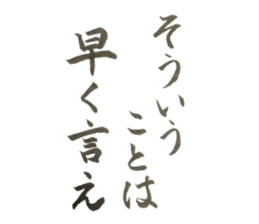 そういう
ことは
早く言え